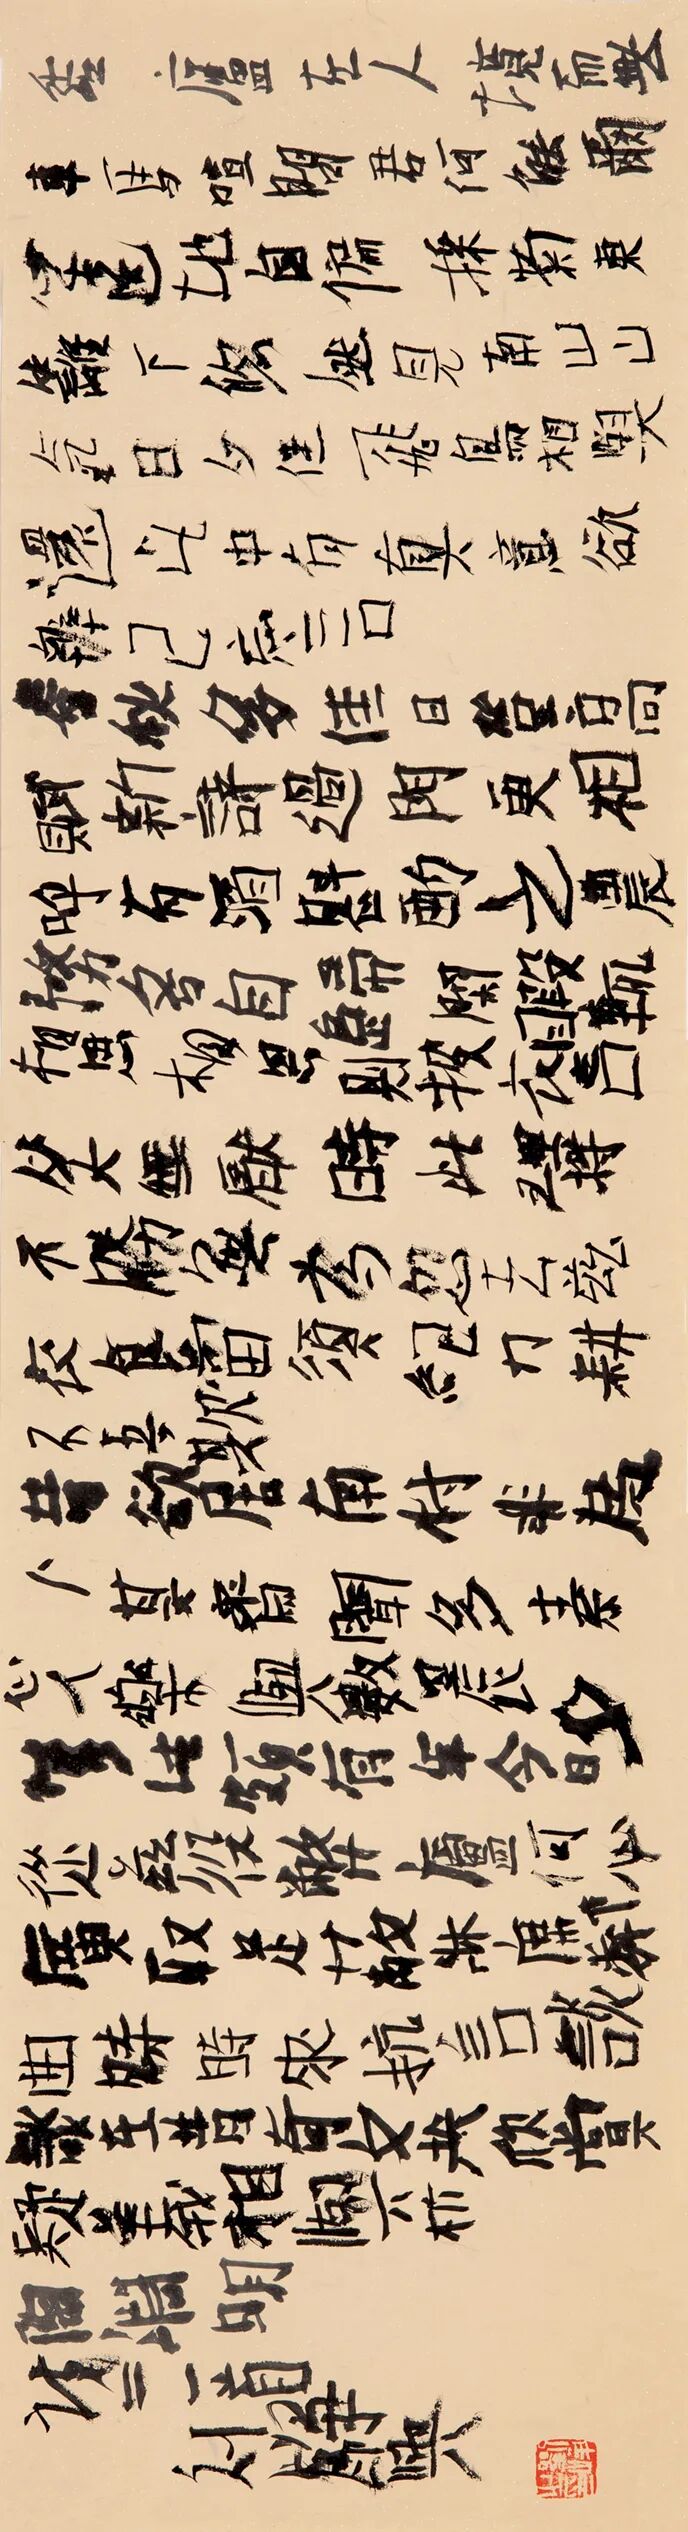 結廬在人境而無
車馬喧問君何能爾
心遠地自偏採菊東
籬下悠然見南山山
氣日夕佳飛鳥相與
還此中有真意欲
辨已忘言
春秋多佳日登高
賦新詩過門更相
呼有酒斟酌之農
務各自歸閒暇輒
相思相思則披衣言
笑無厭時此理將
不勝無為忽去茲
衣食當須紀力耕
不吾欺
昔欲居南村非為
卜其宅聞多素
心人樂與數晨夕
懷此頗有年今日
從茲役弊廬何必
廣取足蔽床席鄰
曲時時來抗言談
談在昔奇文共欣賞
疑義相與析
陶淵明
詩三首